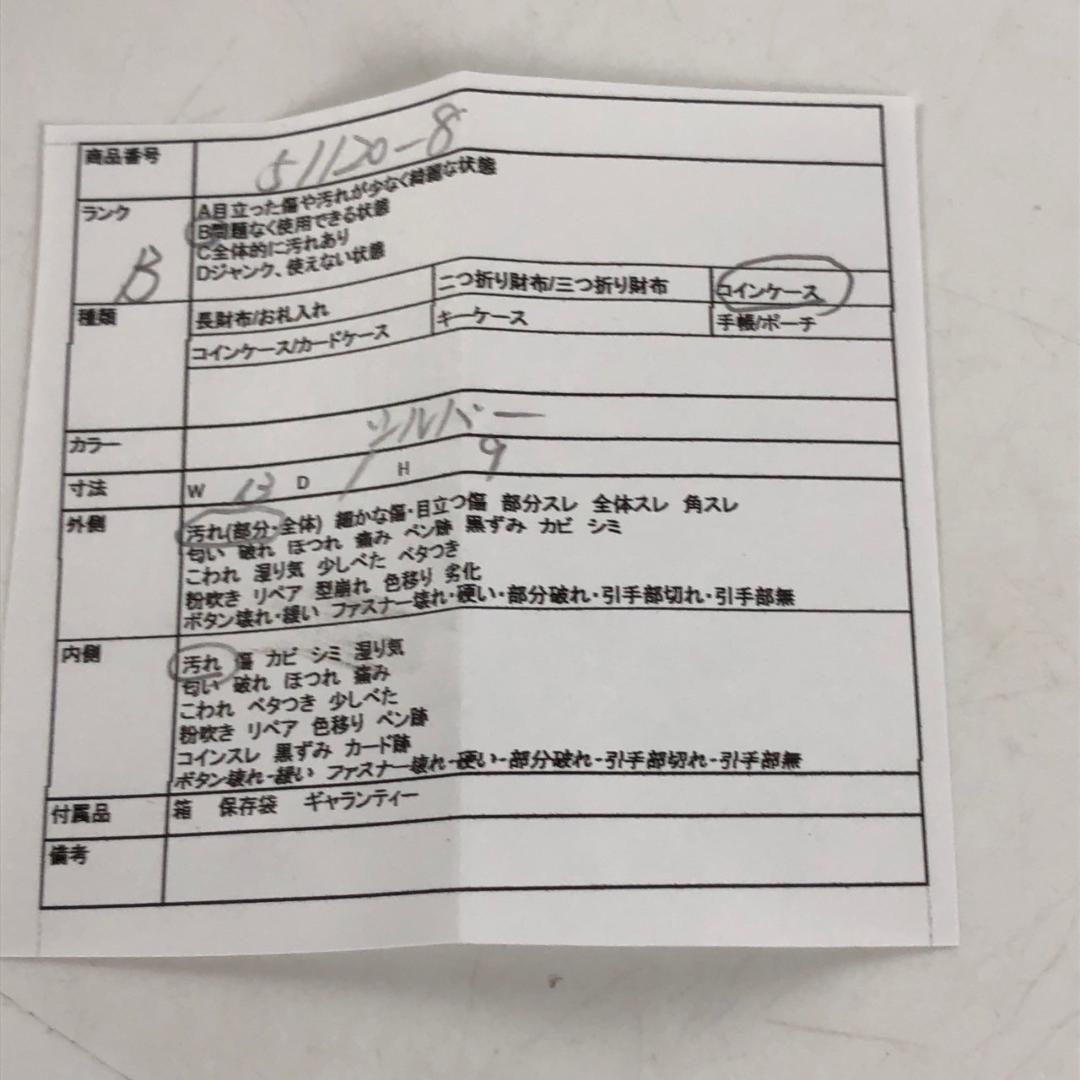 商品番号 51120-8
ランク B
A目立った傷や汚れが少なく綺麗な状態
B問題なく使用できる状態
C全体的に汚れあり
Dジャンク、使えない状態
種類 長財布/お札入れ 二つ折り財布/三つ折り財布 コインケース
コインケース/カードケース キーケース 手帳/ポーチ
カラー シルバー
寸法 W 13 D 1 H 9
外側 汚れ(部分・全体) 細かな傷・目立つ傷 部分スレ 全体スレ 角スレ
匂い 破れ ほつれ 痛み ペン跡 黒ずみ カビ シミ
こわれ 湿り気 少しべた ベタつき
粉吹き リペア 型崩れ 色移り 劣化
ボタン壊れ・緩い ファスナー壊れ・硬い・部分破れ・引手部切れ・引手部無
内側 汚れ 傷 カビ シミ 湿り気
匂い 破れ ほつれ 痛み
こわれ ベタつき 少しべた
粉吹き リペア 色移り ペン跡
コインスレ 黒ずみ カード跡
ボタン壊れ・緩い ファスナー壊れ・硬い・部分破れ・引手部切れ・引手部無
付属品 箱 保存袋 ギャランティー
備考